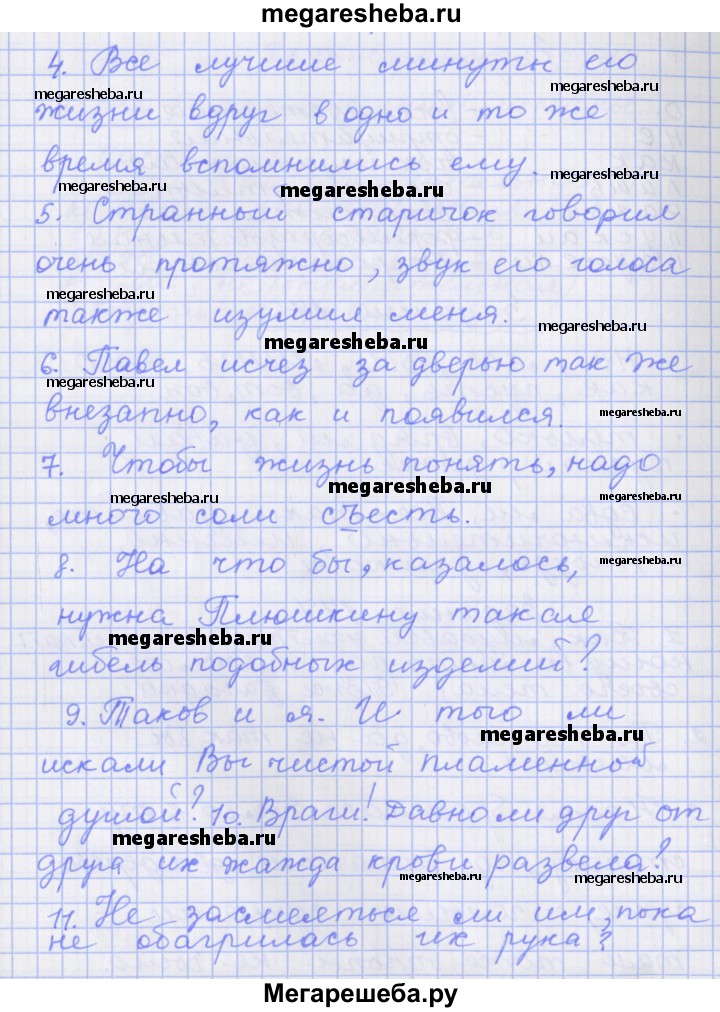 megaresheba.ru
4. Все лучшие минуты его
megaresheba.ru
megaresheba.ru
жизни вдруг в одно и то же
время вспомнились ему.
megaresheba.ru
megaresheba.ru
megaresheba.ru
5. Странный старичок говорил
очень протяжно, звук его голоса
megaresheba.ru
также изумил меня.
megaresheba.ru
megaresheba.ru
6. Павел исчез за дверью так же
megaresheba.ru
внезапно, как и появился.
megaresheba.ru
7. Чтобы жизнь понять, надо
megaresheba.ru
megaresheba.ru
много соли съесть.
8. На что бы, казалось,
megaresheba.ru
нужна Плюшкину такая
megaresheba.ru
гибель подобных изделий?
9. Таков и я. И того ли
megaresheba.ru
искали Вы чистой пламенной
душой? 10. Враги! Давно ли друг от
megaresheba.ru
друга их жажда крови развела?
megaresheba.ru
megaresheba.ru
11. Не засмеяться ли им, пока
не обагрилась их рука?
Мегарешеба.ру